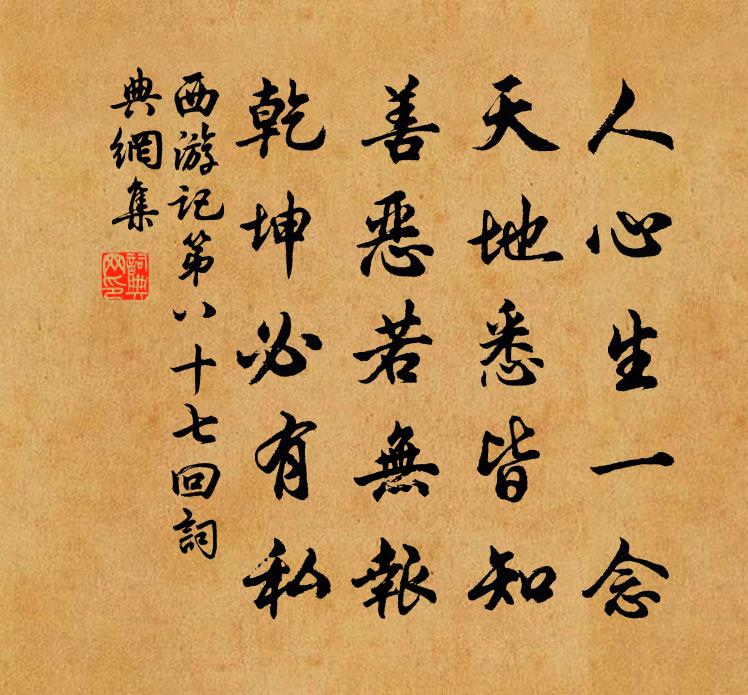 人心生一念
天地悉皆知
善惡若無報
乾坤必有私
西游记第八十七回詞
典網集
詞典網印